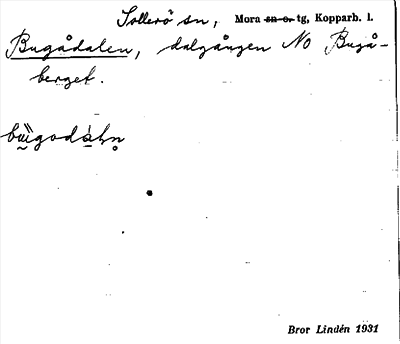 Sollerö sn, Mora sn o. tg, Kopparb. l.
Bugådalen, dalgången NO Bugå-
berget.
Bror Lindén 1931